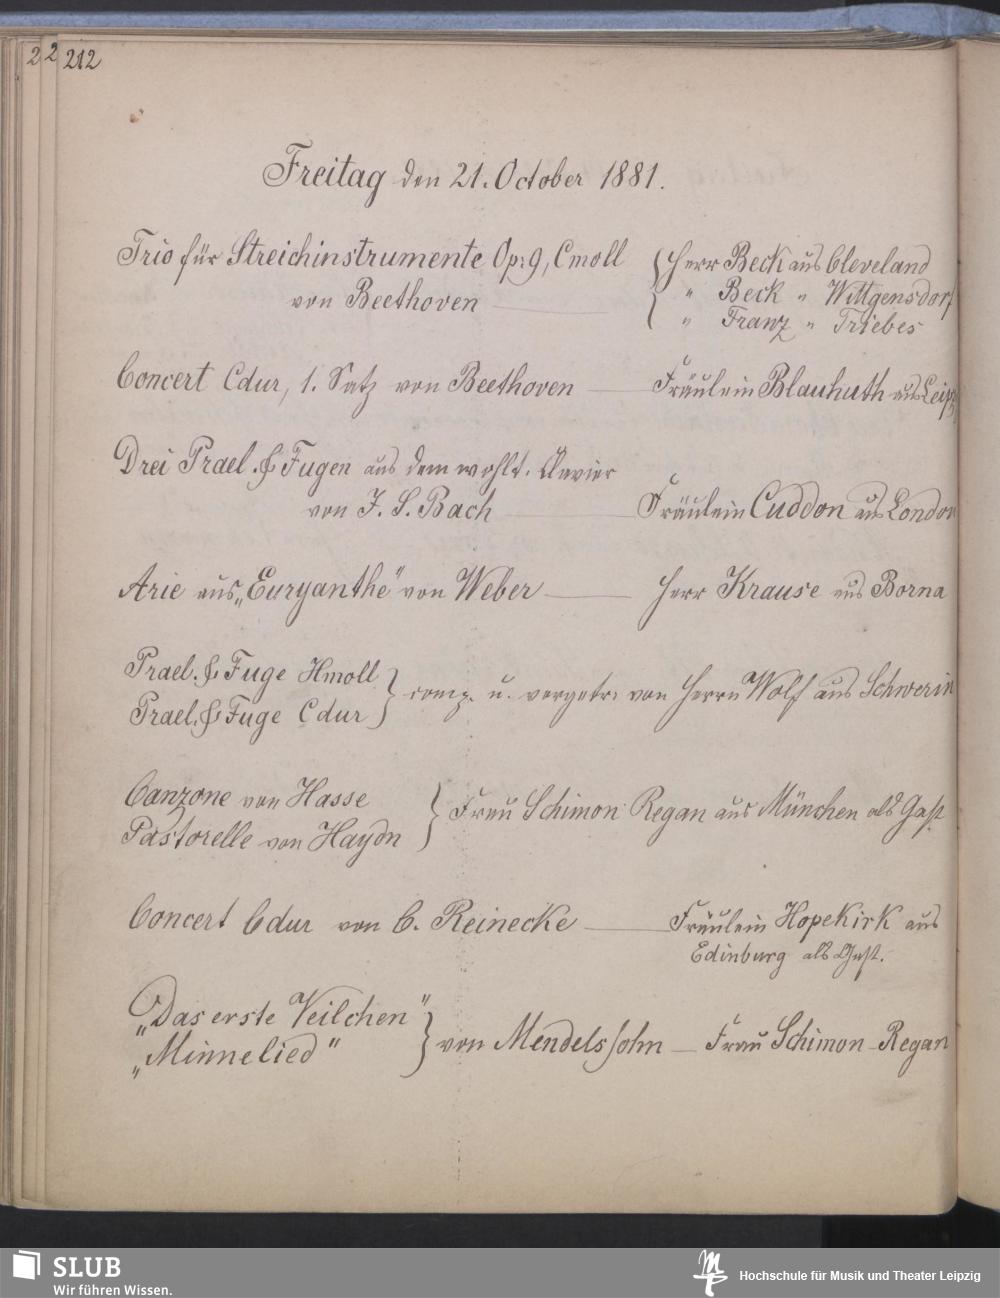 212
Freitag den 21. October 1881.
Trio für Streichinstrumente Op: 9, Cmoll
von Beethoven
Herr Beck aus Cleveland
" Beck " Wittgensdorf
" Franz " Triebes
Concert Cdur, 1. Satz von Beethoven — Fräulein Blauhuth aus Leipz
Drei Prael. & Fugen aus dem wohlt. Clavier
von J. S. Bach — Fräulein Cuddon aus London
Arie aus „Euryanthe" von Weber — Herr Krause aus Borna
Prael. & Fuge Hmoll
Prael. & Fuge Cdur
comp. u. vorgetr. von Herrn Wolf aus Schwerin
Canzone von Hasse
Pastorelle von Haydn
Frau Schimon Regan aus München als Gast
Concert Cdur von C. Reinecke — Fräulein Hopekirk aus
Edinburg als Gast.
„Das erste Veilchen"
„Minnelied"
von Mendelssohn — Frau Schimon-Regan
SLUB
Wir führen Wissen.
Hochschule für Musik und Theater Leipzig